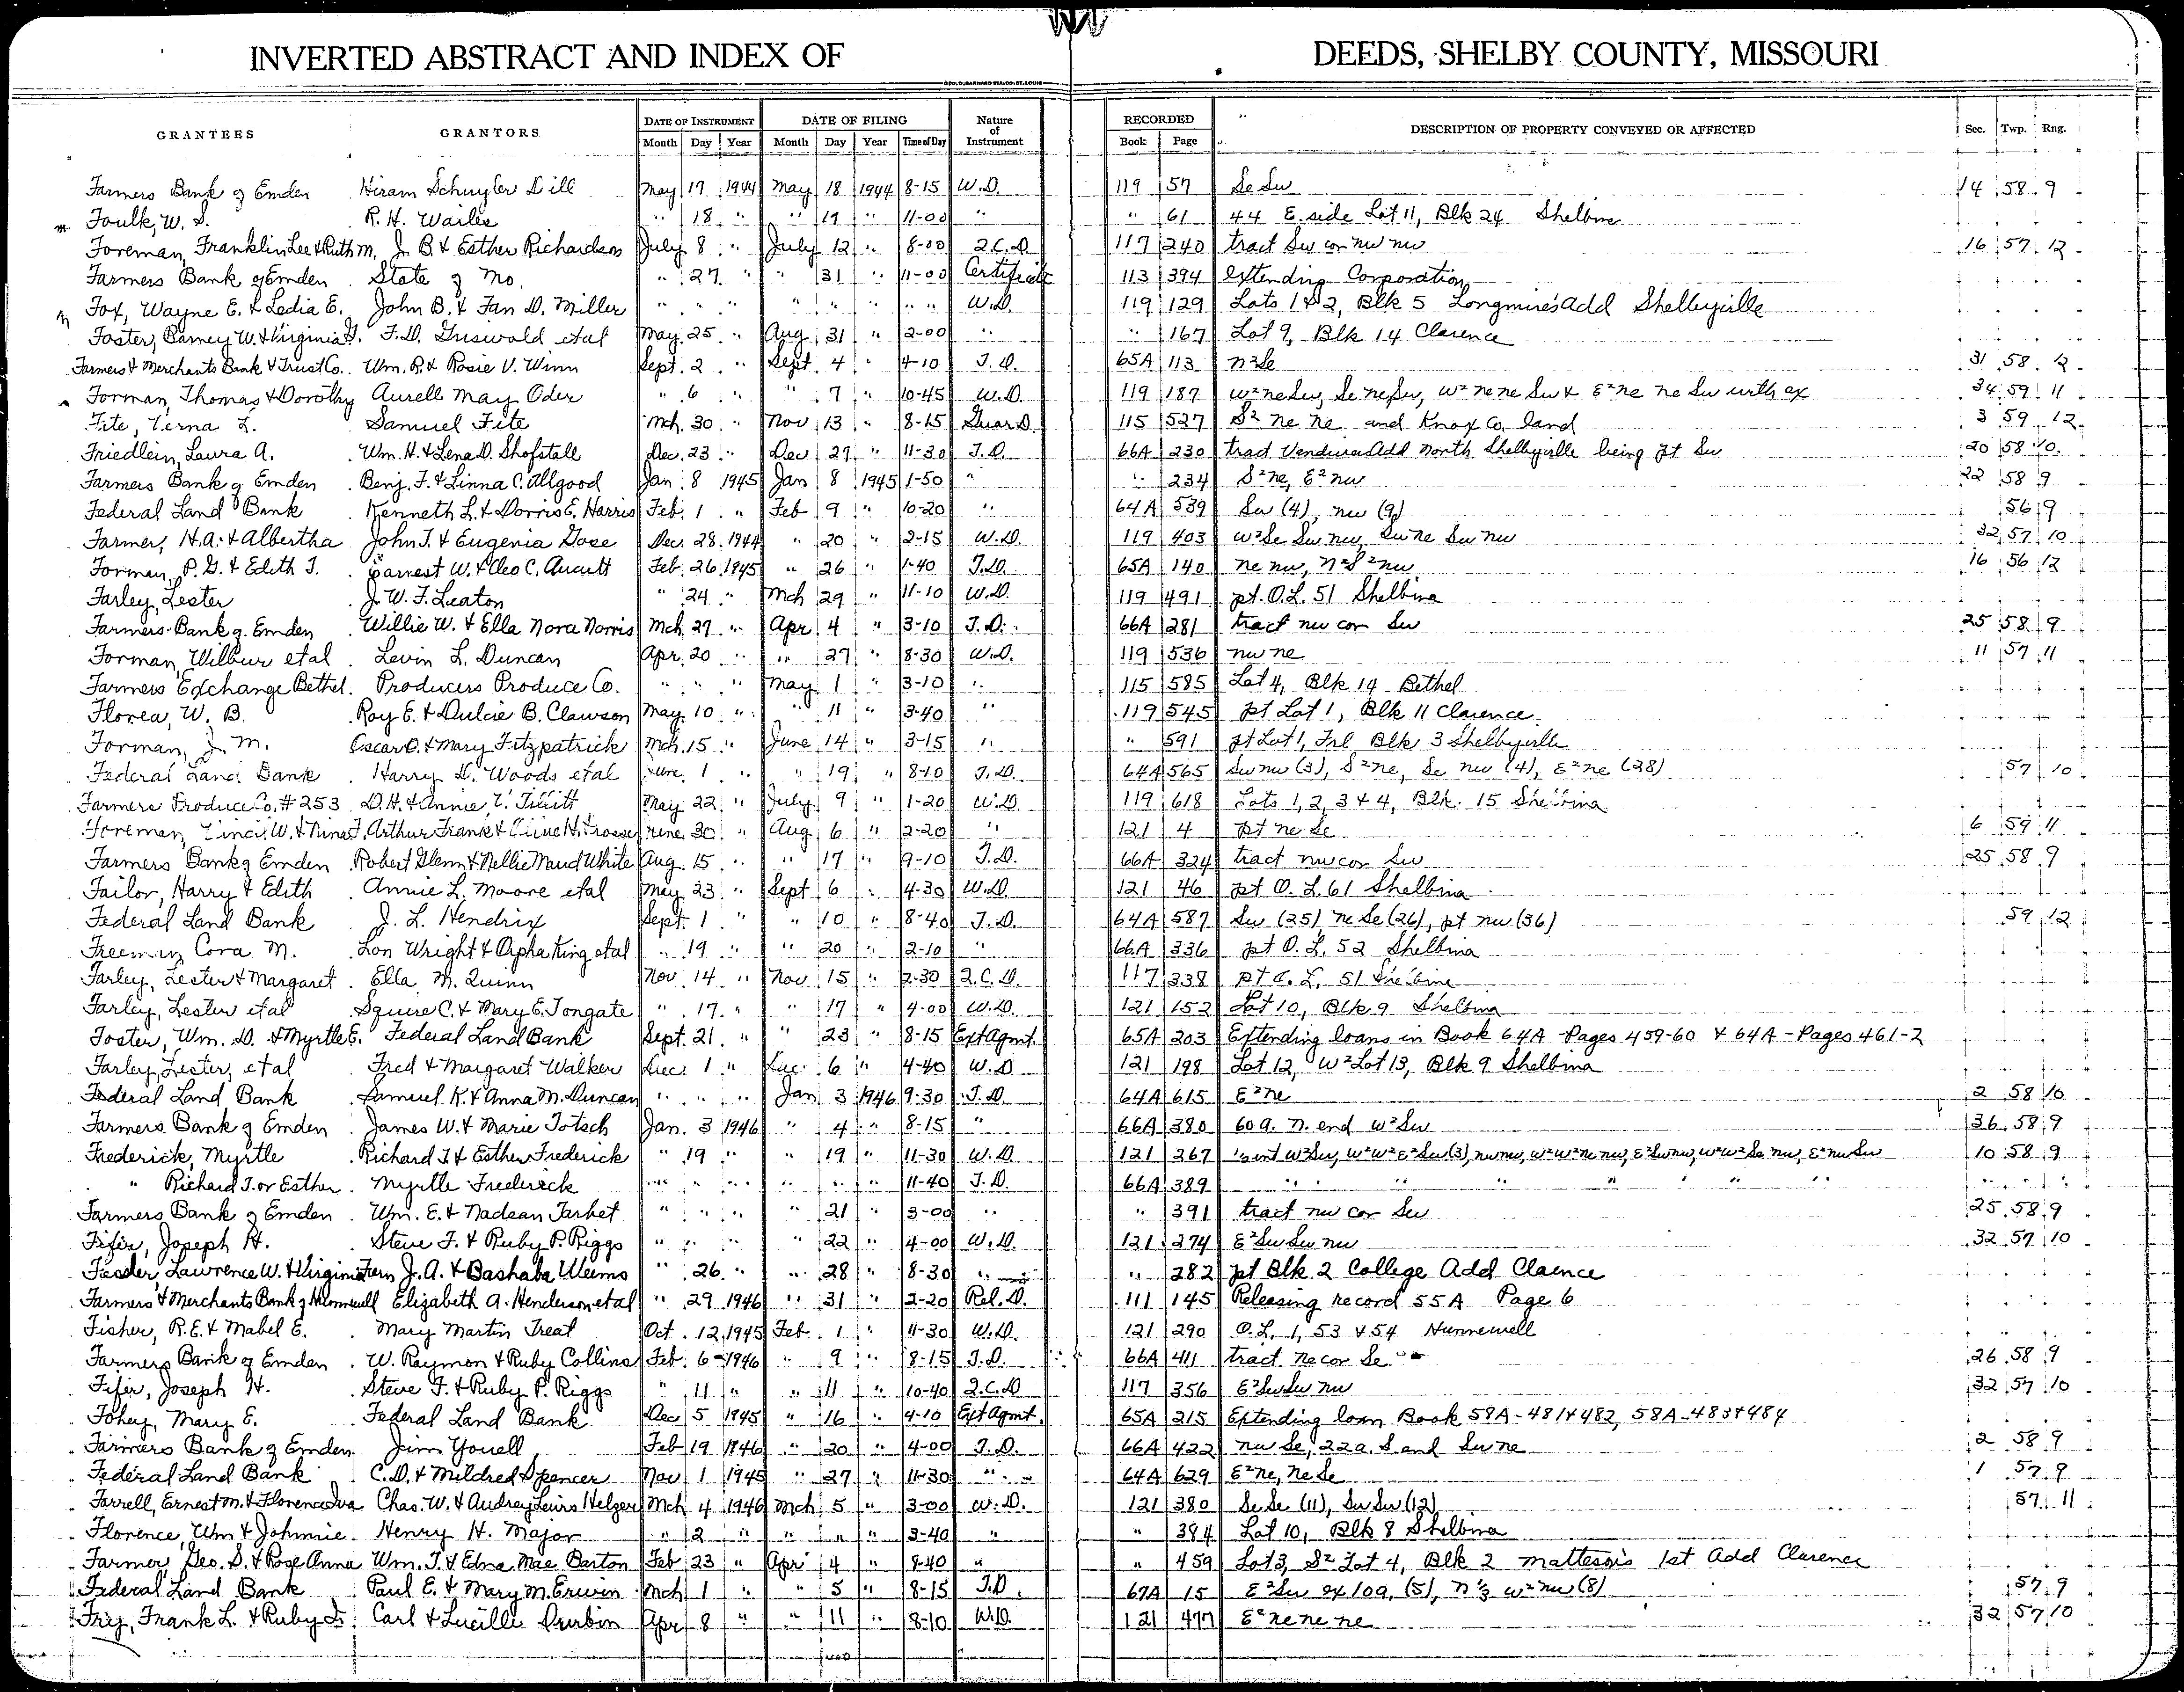 INVERTED ABSTRACT AND INDEX OF DEEDS, SHELBY COUNTY, MISSOURI
GEO. D. BARNARD STA. CO. ST. LOUIS
GRANTEES GRANTORS DATE OF INSTRUMENT DATE OF FILING Nature of Instrument RECORDED DESCRIPTION OF PROPERTY CONVEYED OR AFFECTED Sec. Twp. Rng.
Month Day Year Month Day Year Time of Day Book Page
Farmers Bank of Emden Hiram Schuyler Dill May 17 1944 May 18 1944 8-15 W.D. 119 57 Se Sw 14 58 9
Foulk, W. S. R. H. Wailes " 18 " " 19 " 11-00 " " 61 44 E. side Lot 11, Blk 24 Shelbina
Foreman, Franklin Lee & Ruth M. J. B & Esther Richardson July 8 " July 12 " 8-00 Q.C.D. 117 240 tract Sw cor nw nw 16 57 12
Farmers Bank of Emden State of Mo. " 27 " " 31 " 11-00 Certificate 113 394 extending Corporation
Fox, Wayne E. & Ledia E. John B. & Fan D. Miller " " " " " " " " W.D. 119 129 Lots 1 & 2, Blk 5 Longmires Add Shelbyville
Foster, Barney W. & Virginia F. D. Griswold etal May 25 " Aug 31 " 2-00 " " 167 Lot 9, Blk 14 Clarence
Farmers & Merchants Bank & Trust Co. Wm. R & Rosie V. Winn Sept. 2 " Sept. 4 " 4-10 T.D. 65A 113 n²Se 31 58 12
Forman, Thomas & Dorothy Aurell May Oder " 6 " " 7 " 10-45 W.D. 119 187 w²neSw, Se neSw, w² ne ne Sw & E²ne ne Sw with ex 34 59 11
Fite, Verna L. Samuel Fite Mch. 30 " Nov 13 " 8-15 Guar D. 115 527 S² ne ne and Knox Co. land 3 59 12
Friedlein, Laura A. Wm. H. & Lena D. Shofstall Dec. 23 " Dec 27 " 11-30 T.D. 66A 230 tract Vendures Add North Shelbyville being pt Sw 20 58 10
Farmers Bank of Emden Benj. F. & Linna C. Allgood Jan. 8 1945 Jan 8 1945 1-50 " " 234 S²ne, E²nw 22 58 9
Federal Land Bank Kenneth L. & Dorris E. Harris Feb. 1 " Feb 9 " 10-20 " 64A 539 Sw (4), nw (9) 56 9
Farmer, H.A. & Albertha John T. & Eugenia Gose Dec. 28 1944 " 20 " 2-15 W.D. 119 403 w²Se Sw nw, Sw ne Sw nw 32 57 10
Forman, P. G. & Edith T. Earnest W. & Cleo C. Aucutt Feb. 26 1945 " 26 " 1-40 T.D. 65A 140 ne nw, n²S²nw 16 56 12
Farley, Lester J. W. F. Leaton " 24 " Mch 29 " 11-10 W.D. 119 491 pt. O.L. 51 Shelbina
Farmers Bank of Emden Willie W. & Ella Nora Norris Mch. 27 " Apr. 4 " 3-10 T.D. 66A 281 tract nw cor Sw 25 58 9
Forman, Wilbur etal Levin L. Duncan Apr. 20 " " 27 " 8-30 W.D. 119 536 nw ne 11 57 11
Farmers Exchange Bethel Producers Produce Co. " " " May 1 " 3-10 " 115 585 Lot 4, Blk 14 Bethel
Florea, W. B. Roy E. & Dulcie B. Clawson May 10 " " 11 " 3-40 " 119 545 pt Lot 1, Blk 11 Clarence
Forman, J. M. Oscar D. & Mary Fitzpatrick Mch. 15 " June 14 " 3-15 " " 591 pt Lot 1, Frl Blk 3 Shelbyville
Federal Land Bank Harry D. Woods etal June 1 " " 19 " 8-10 T.D. 64A 565 Sw nw (3), S²ne, Se nw (4), E²ne (28) 57 10
Farmers Produce Co. #253 D. H. & Annie V. May 22 " July 9 " 1-20 W.D. 119 618 Lots 1, 2, 3 & 4, Blk. 15 Shelbina
Foreman, W. & Nina F. Arthur Frank & Olive H. June 30 " Aug 6 " 2-20 " 121 4 pt ne Se 6 59 11
Farmers Bank of Emden Robert Glenn & Nellie Maud White Aug. 15 " " 17 " 9-10 T.D. 66A 324 tract nw cor Sw 25 58 9
Failor, Harry & Edith Annie L. Moore etal May 23 " Sept 6 " 4-30 W.D. 121 46 pt O. L. 61 Shelbina
Federal Land Bank J. L. Hendrix Sept. 1 " " 10 " 8-40 T.D. 64A 587 Sw (25), ne Se (26), pt nw (36) 59 12
Freeman Cora M. Lon Wright & Orpha King etal " 19 " " 20 " 2-10 " 66A 336 pt O. L. 52 Shelbina
Farley, Lester & Margaret Ella M. Quinn Nov. 14 " Nov 15 " 2-30 Q.C.D. 117 338 pt O. L. 51 Shelbina
Farley, Lester etal Squire C. & Mary E. Tongate " 17 " " 17 " 4-00 W.D. 121 152 Lot 10, Blk 9 Shelbina
Foster, Wm. D. & Myrtle E. Federal Land Bank Sept. 21 " " 23 " 8-15 Ext Agmt. 65A 203 Extending loans in Book 64A - Pages 459-60 & 64A - Pages 461-2
Farley, Lester, etal Fred & Margaret Walker Dec. 1 " Dec. 6 " 4-40 W.D 121 198 Lot 12, W²Lot 13, Blk 9 Shelbina
Federal Land Bank Samuel K. & Anna M. Duncan " " " Jan 3 1946 9-30 T.D. 64A 615 E²ne 2 58 10
Farmers Bank of Emden James W. & Marie Totsch Jan. 3 1946 " 4 " 8-15 " 66A 380 60 a. n. end w²Sw 36 58 9
Frederick, Myrtle Richard T. & Esther Frederick " 19 " " 19 " 11-30 W.D. 121 267 W²Sw, W²W²E²Sw (3), nw nw, W²W²ne nw, E²Sw nw, W²W²Se nw, E²nw Sw 10 58 9
" Richard T. or Esther Myrtle Frederick " " " " " " 11-40 T.D. 66A 389 " " " " " "
Farmers Bank of Emden Wm. E. & Nadean Tarbet " " " " 21 " 3-00 " " 391 tract nw cor Sw 25 58 9
Fifer, Joseph H. Steve F. & Ruby P. Riggs " " " " 22 " 4-00 W.D. 121 274 E²Sw Sw nw 32 57 10
Fessler, Lawrence W. & Virginia Fern J. A. & Bashaba Weems " 26 " " 28 " 8-30 " " 282 pt Blk 2 College Add Clarence
Farmers & Merchants Bank of Hunnewell Elizabeth A. Henderson etal " 29 1946 " 31 " 2-20 Rel. D. 111 145 Releasing record 55A Page 6
Fisher, R. E. & Mabel E. Mary Martin Treat Oct. 12 1945 Feb. 1 " 11-30 W.D. 121 290 O. L. 1, 53 & 54 Hunnewell
Farmers Bank of Emden W. Raymon & Ruby Collins Feb. 6 1946 " 9 " 8-15 T.D. 66A 411 tract ne cor Se 26 58 9
Fifer, Joseph H. Steve F. & Ruby P. Riggs " 11 " " 11 " 10-40 Q.C.D 117 356 E²Sw Sw nw 32 57 10
Fohey, Mary E. Federal Land Bank Dec 5 1945 " 16 " 4-10 Ext Agmt. 65A 215 Extending loan Book 58A-481 & 482, 58A-483 & 484
Farmers Bank of Emden Jim Youell Feb 19 1946 " 20 " 4-00 T.D. 66A 422 nw Se, 22 a. S. end Sw ne 2 58 9
Federal Land Bank C. D. & Mildred Spencer Nov 1 1945 " 27 " 11-30 " 64A 629 E²ne, ne Se 1 57 9
Farrell, Ernest M. & Florence Iva Chas. W. & Audrey Lewis Helzer Mch 4 1946 Mch 5 " 3-00 W.D. 121 380 Se Se (11), Sw Sw (12) 57 11
Florence, Wm & Johnnie Henry H. Major " 2 " " " " 3-40 " " 384 Lot 10, Blk 8 Shelbina
Farmer, Geo. S. & Rose Anna Wm. T. & Edna Mae Barton Feb 23 " Apr 4 " 8-40 " " 459 Lot 3, S² Lot 4, Blk 2 Matteson's 1st Add Clarence
Federal Land Bank Paul E. & Mary M. Erwin Mch 1 " " 5 " 8-15 T.D. 67A 15 E²Sw ex 10a, (5), n½ w²nw (8) 57 9
Fry, Frank L. & Ruby Carl & Lucille Durbin Apr 8 " " 11 " 8-10 W.D. 121 477 E²ne ne ne 32 57 10